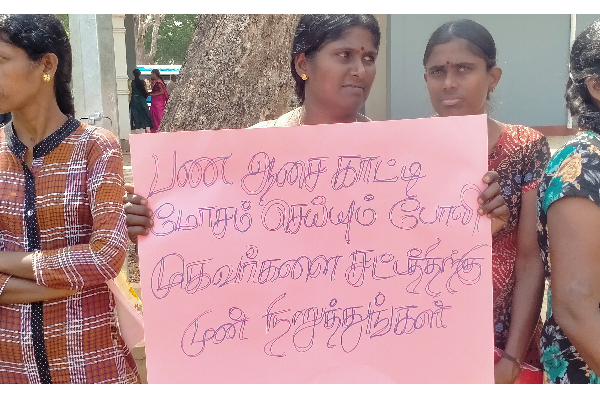 பண ஆசை காட்டி
மோசம் செய்யும் போலி
முகவர்களை சட்டத்திற்கு
முன் நிறுத்துங்கள்